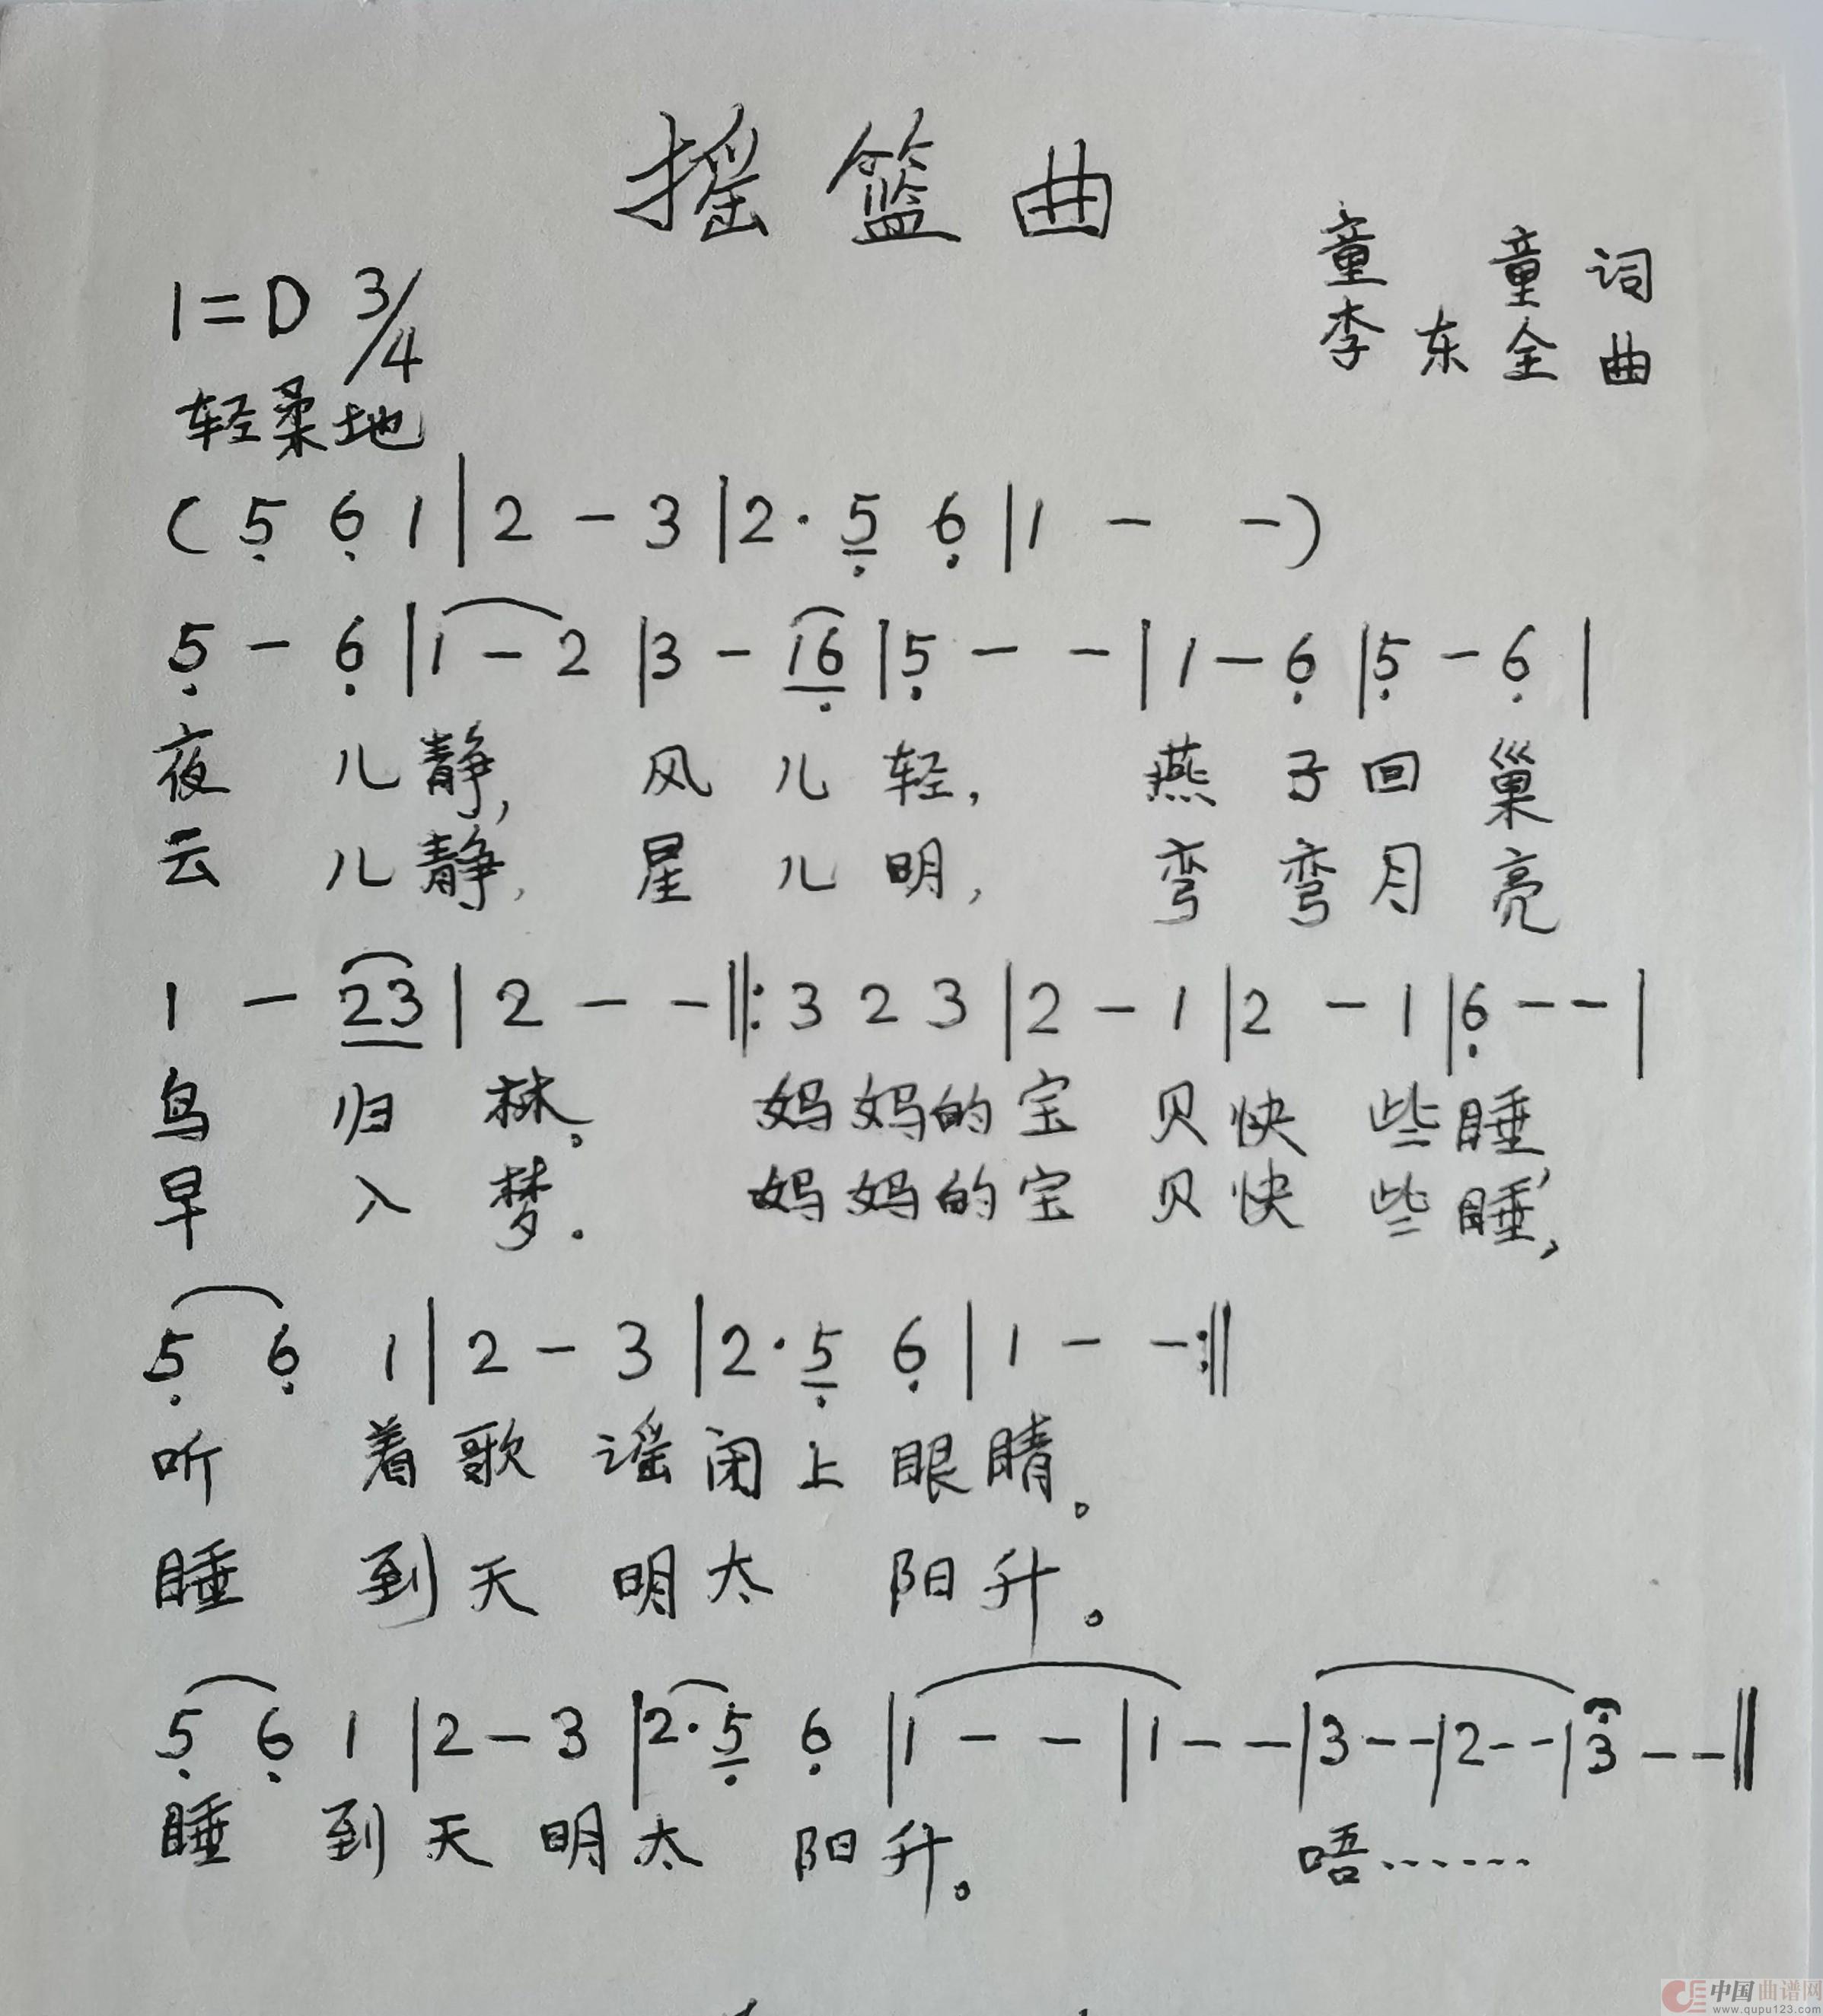 摇篮曲
童 童 词
李东全 曲
1=D 3/4
轻柔地
(5̣ 6̣ 1|2 - 3|2· 5̣ 6̣|1 - -)
5̣ - 6̣|1 - 2|3 - 16̣|5̣ - -|1 - 6̣|5̣ - 6̣|
夜 儿静, 风 儿 轻, 燕 子回 巢
云 儿静, 星 儿 明, 弯 弯月 亮
1 - 23|2 - -‖:3 2 3|2 - 1|2 - 1|6̣ - -|
鸟 归 林。 妈妈的宝 贝快 些睡,
早 入 梦. 妈妈的宝 贝快 些睡,
5̣ 6̣ 1|2 - 3|2· 5̣ 6̣|1 - -:‖
听 着歌 谣闭上眼睛。
睡 到天 明太 阳升。
5̣ 6̣ 1|2 - 3|2· 5̣ 6̣|1 - -|1 - -|3 - -|2 - -|3 - -‖
睡 到天 明太 阳升。 唔……
中国曲谱网
www.qupu123.com